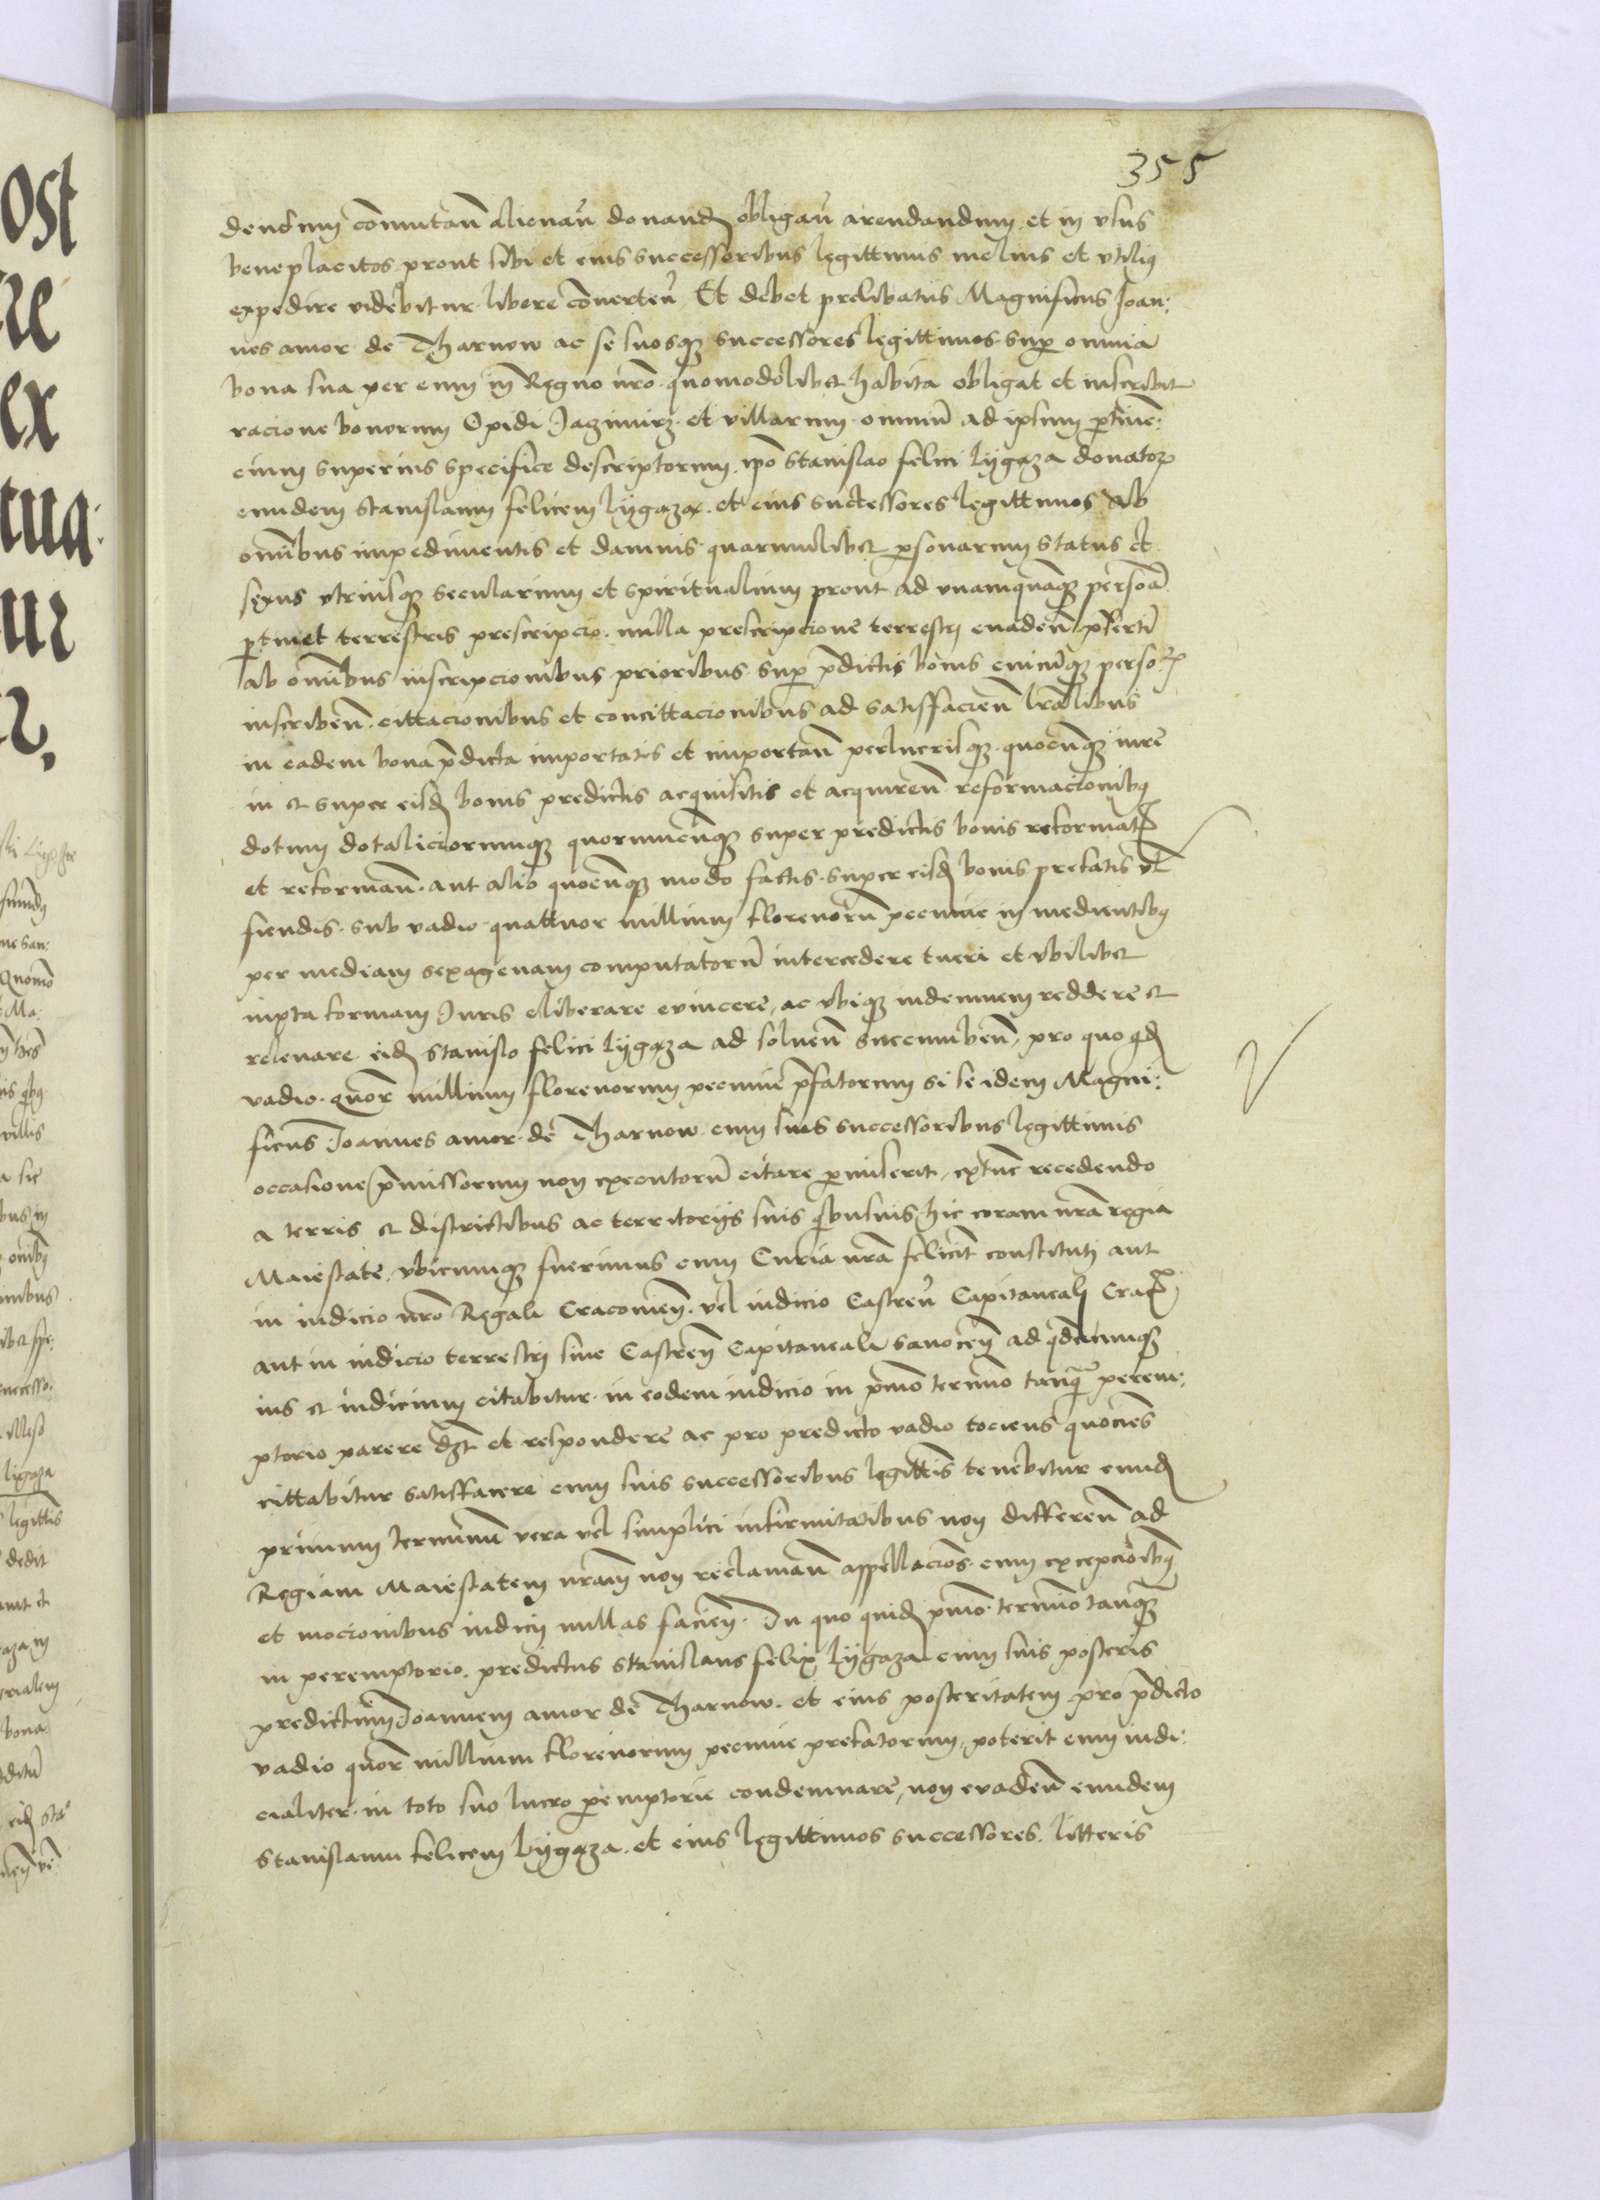 355
dendum com̄utan̄ alienan̄ donand obligan̄ arendandum et in vsus
beneplacitos prout sibi et eius successoribus legittimis melius et vtilius
expedire videbitur libere conuerten̄ Et debet prelibatus Magnificus Joan:
nes amor de Tharnow ac se suosq3 successores legittimos sup omnia
bona sua per eum in Regno nr̄o quomodolibet habita obligat et inscribit
racione bonorum Opidi Jaczimirz et villarum omniū ad ipsum ptinen:
cium superius specifice descriptorum ip̄o Stanislao felici Lygąza donatoꝝ
eundem Stanislaum felicem Lygąza et eius successores legittimos Ab
omībus impedimentis et damnis quarumlibet psonarum status et
sexus vtriusq3 secularium et spiritualium prout ad vnamquāq3 persoā
ptinet terrestris prescripcio nulla prescripcione terrestrj euaden̄ pserti
ab omībus inscripcionibus prioribus sup p̄dictis bonis cuicūq3 perso
inscriben̄ cittacionibus et concittacionibus ad satisfacien̄ lr̄alibus
in eadem bona p̄dicta importatis et importan̄ perlucrisq3 quocūq3 iure
in et super eisd bonis predictis acquisitis et acquiren̄ reformacionibus
dotum dotaliciorumq3 quorumcūq3 super predictis bonis reformat
et reforman̄ aut alio quocūq3 modo factis super eisd bonis prefatis vl
fiendis sub vadio quattuor millium florenorū pecunie in medientibus
per mediam sexagenam computatorū intercedere tueri et vbilibet
iuxta formam Juris eliberare euincere ac vbiq3 indemnem reddere et
releuare eid Stanislao felici Lygąza ad soluen̄ succumben̄ pro quo qd
vadio quor millium florenorum pecunie p̄fatorum si se idem Magni:
ficus Joannes amor de Tharnow cum suis successoribus legittimis
occasione p̄missorum non executorū citare pmiserit extunc recedendo
a terris et districtibus ac territorijs suis q̄buscuis hic coram nr̄a regia
Maiestate vbicumq3 fuerimus cum Curia nr̄a felicit constituti aut
in iudicio nr̄o Regali Cracouien̄ vel iudicio Castren̄ Capitaneali Crac
aut in iudicio terrestrj siue Castren̄ Capitaneali Sanocen̄ ad qdcūmq3
ius et iudicium citabitur in eodem iudicio in p̄mo termīo tanq̄ perem:
ptorio parere dz et respondere ac pro predicto vadio tociens quocies
cittabitur satisfacere cum suis successoribus legittīs tenebitur eund
primum terminū vera vel simplici infirmitatibus non differen̄ ad
Regiam Maiestatem nr̄am non reclaman̄ appellacões cum excepcionibus
et mocionibus iudicij nullas facien̄ In quo quid p̄mo termīo tanq3
in peremptorio predictus Stanislaus felix Lygąza cum suis posteris
predictum Joannem amor de Tharnow et eius posteritatem pro p̄dicto
vadio quor millium florenorum pecunie prefatorum poterit cum iudi:
cialiter in toto suo lucro pemptorie condemnare non euaden̄ eundem
Stanislaum felicem Lygąza et eius legittimos successores litteris